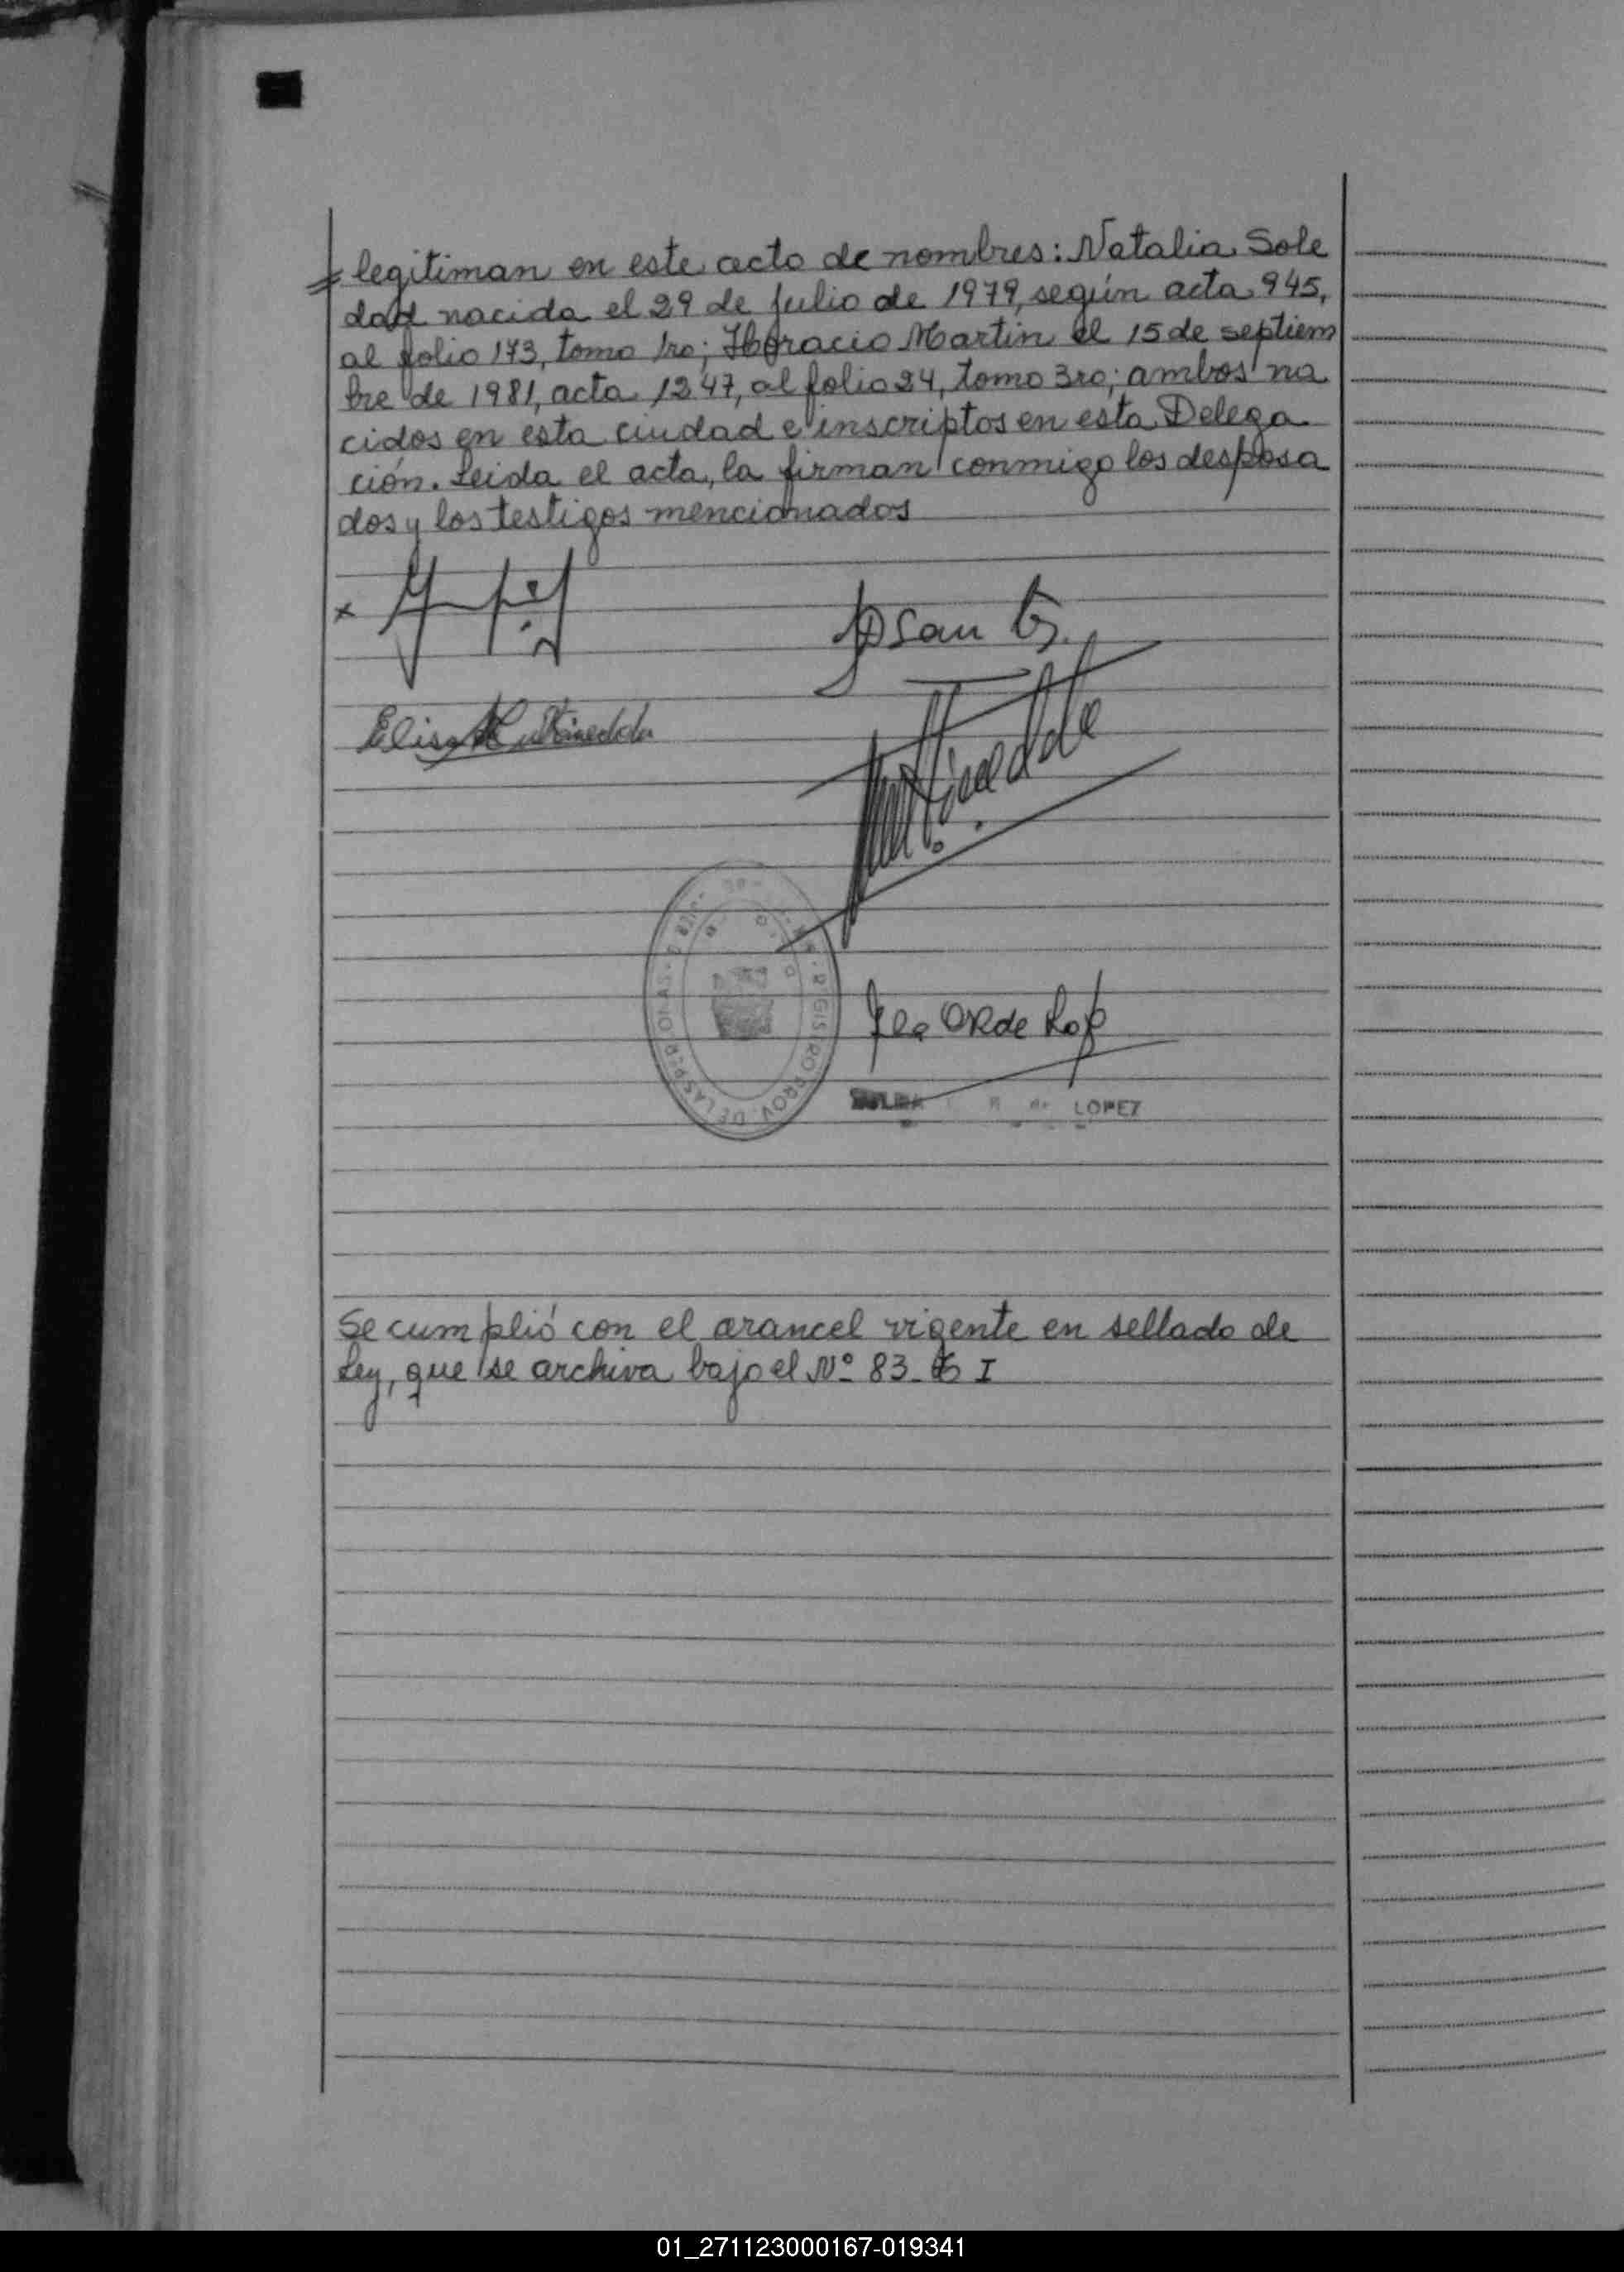 legitiman en este acto de nombres: Natalia Sole
dad nacida el 29 de julio de 1979, según acta 945,
al folio 173, tomo 1ro; Horacio Martin el 15 de septiem
bre de 1981, acta 1247, al folio 24, tomo 3ro; ambos na
cidos en esta ciudad e inscriptos en esta Delega
ción. Leida el acta, la firman conmigo los desposa
dos y los testigos mencionados
Elisa
REGISTRO PROV. DE LAS PERSONAS
de LOPEZ
Se cumplió con el arancel vigente en sellado de
Ley, que se archiva bajo el Nº 83 I
01_271123000167-019341